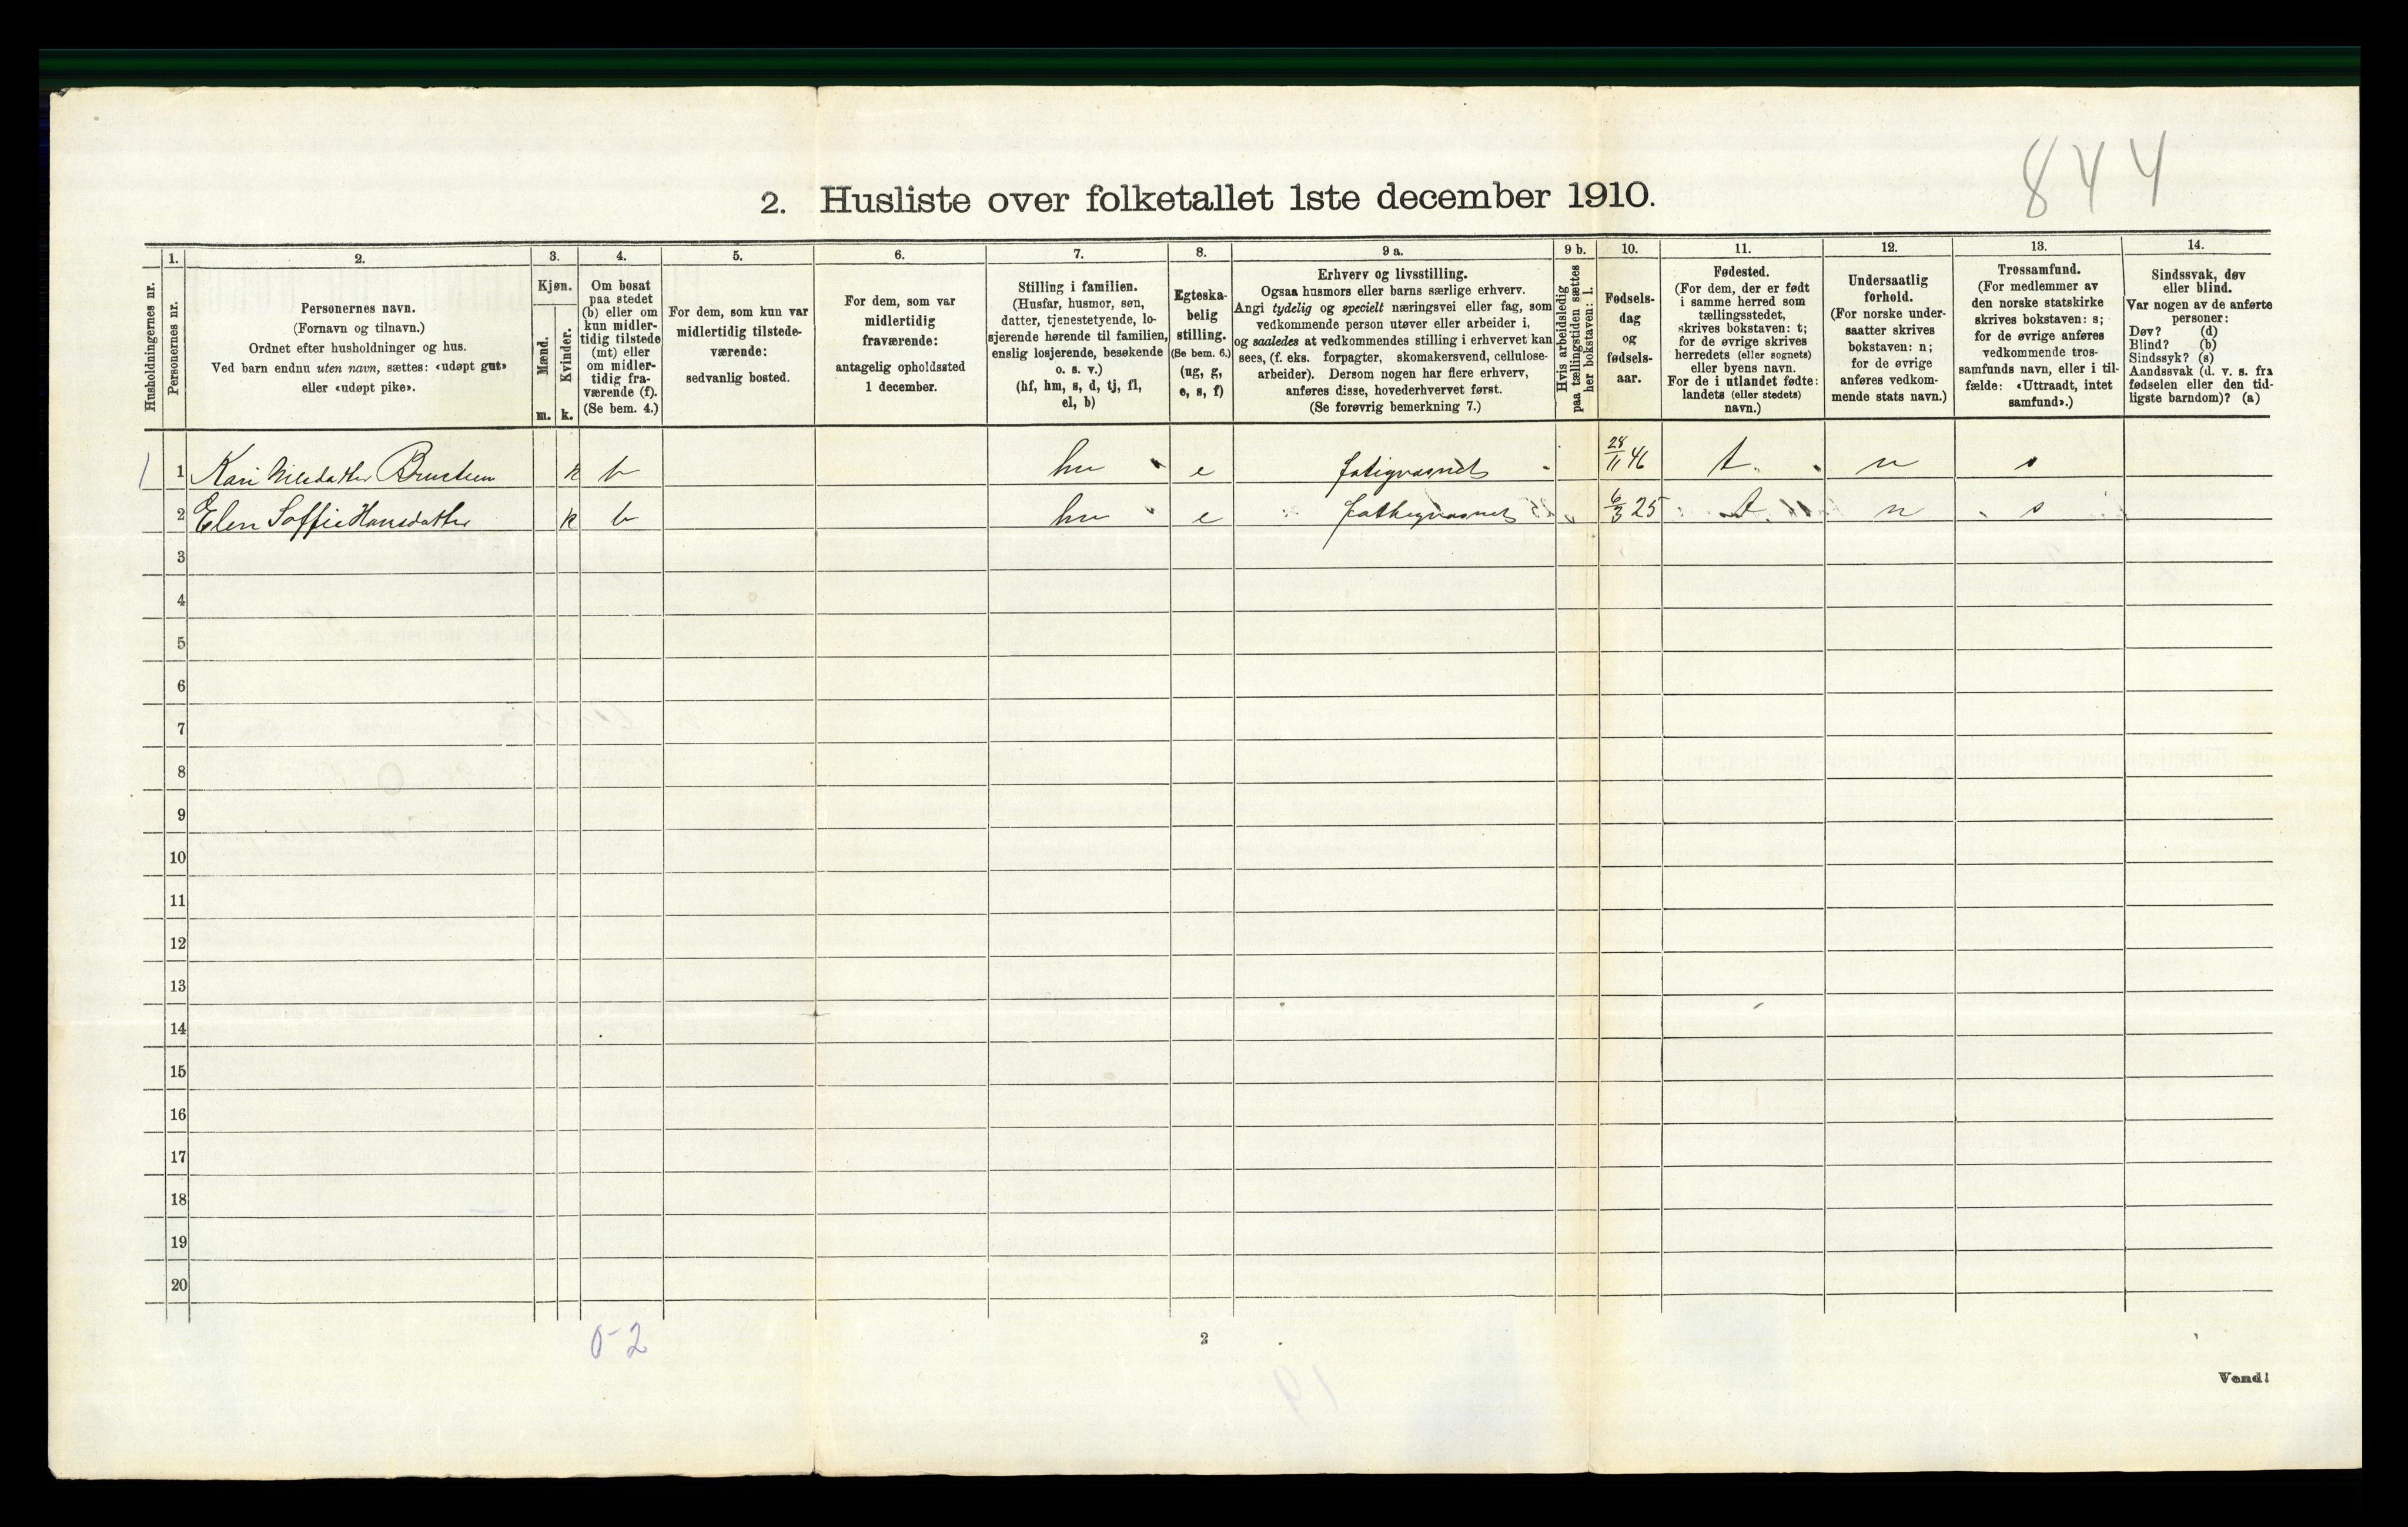 844
2. Husliste over folketallet 1ste december 1910.
Husholdningernes nr.
1. Personernes nr.
2. Personernes navn.
(Fornavn og tilnavn.)
Ordnet efter husholdninger og hus.
Ved barn endnu uten navn, sættes: «udøpt gut»
eller «udøpt pike».
3. Kjøn.
Mænd. m.
Kvinder. k.
4. Om bosat
paa stedet
(b) eller om
kun midler-
tidig tilstede
(mt) eller
om midler-
tidig fra-
værende (f).
(Se bem. 4.)
5. For dem, som kun var
midlertidig tilstede-
værende:
sedvanlig bosted.
6. For dem, som var
midlertidig
fraværende:
antagelig opholdssted
1 december.
7. Stilling i familien.
(Husfar, husmor, søn,
datter, tjenestetyende, lo-
sjerende hørende til familien,
enslig losjerende, besøkende
o. s. v.)
(hf, hm, s, d, tj, fl,
el, b)
8. Egteska-
belig
stilling.
(Se bem. 6.)
(ug, g,
e, s, f)
9 a. Erhverv og livsstilling.
Ogsaa husmors eller barns særlige erhverv.
Angi tydelig og specielt næringsvei eller fag, som
vedkommende person utøver eller arbeider i,
og saaledes at vedkommendes stilling i erhvervet kan
sees, (f. eks. forpagter, skomakersvend, cellulose-
arbeider). Dersom nogen har flere erhverv,
anføres disse, hovederhvervet først.
(Se forøvrig bemerkning 7.)
9 b. Hvis arbeidsledig
paa tællingstiden sættes
her bokstaven: l.
10. Fødsels-
dag
og
fødsels-
aar.
11. Fødested.
(For dem, der er født
i samme herred som
tællingsstedet,
skrives bokstaven: t;
for de øvrige skrives
herredets (eller sognets)
eller byens navn.
For de i utlandet fødte:
landets (eller stedets)
navn.)
12. Undersaatlig
forhold.
(For norske under-
saatter skrives
bokstaven: n;
for de øvrige
anføres vedkom-
mende stats navn.)
13. Trossamfund.
(For medlemmer av
den norske statskirke
skrives bokstaven: s;
for de øvrige anføres
vedkommende tros-
samfunds navn, eller i til-
fælde: «Uttraadt, intet
samfund».)
14. Sindssvak, døv
eller blind.
Var nogen av de anførte
personer:
Døv? (d)
Blind? (b)
Sindssyk? (s)
Aandssvak (d. v. s. fra
fødselen eller den tid-
ligste barndom)? (a)
1 1 Kari Nilsdatter k b hm e 28/11 46 t n s
2 Elen Soffie Hansdatter k b hm e 6/3 25 t n s
3
4
5
6
7
8
9
10
11
12
13
14
15
16
17
18
19
20
0-2
2
Vend!